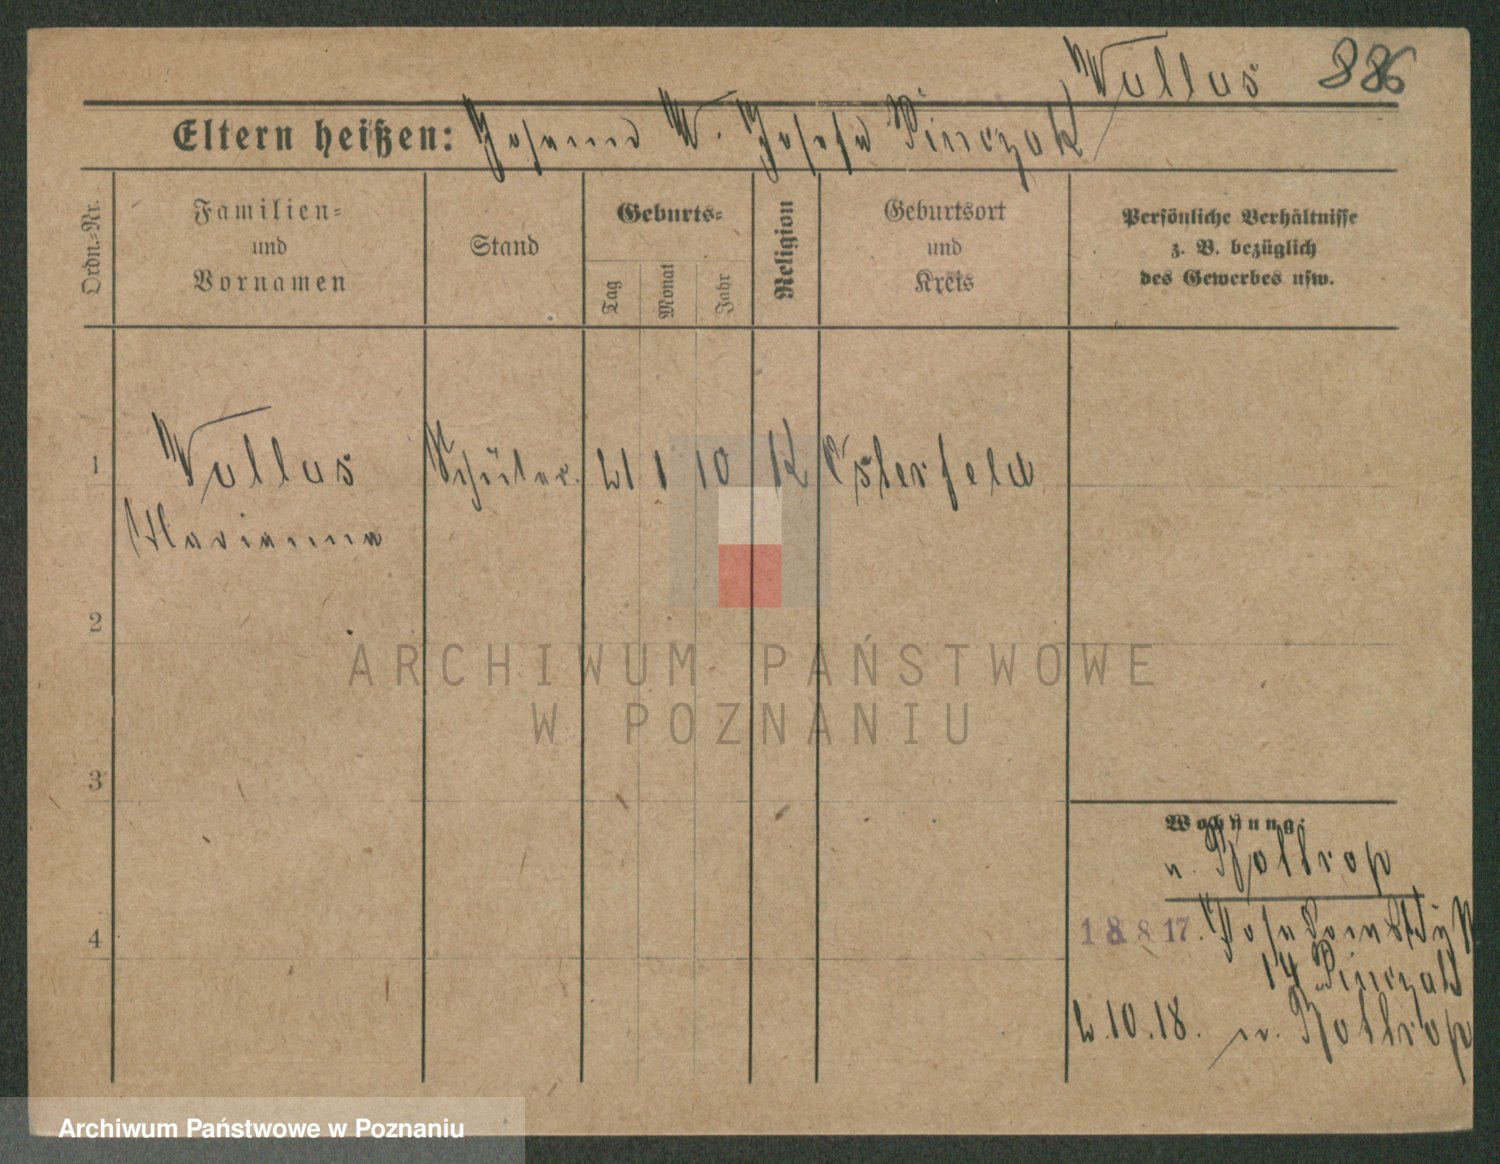 Wallus 886
Eltern heißen: Johann W. Josefa Pinczak
Ordn.-Nr.
Familien-
und
Vornamen
Stand
Geburts-
Tag
Monat
Jahr
Religion
Geburtsort
und
Kreis
Persönliche Verhältnisse
z. B. bezüglich
des Gewerbes usw.
1 Wallus Schüler. 21 1 10 K Osterfeld
Marianna
2
3
4
Wohnung:
n. Bottrop
18 8 17.
14 Pinczak
2.10.18. n. Bottrop
ARCHIWUM PAŃSTWOWE
W POZNANIU
Archiwum Państwowe w Poznaniu